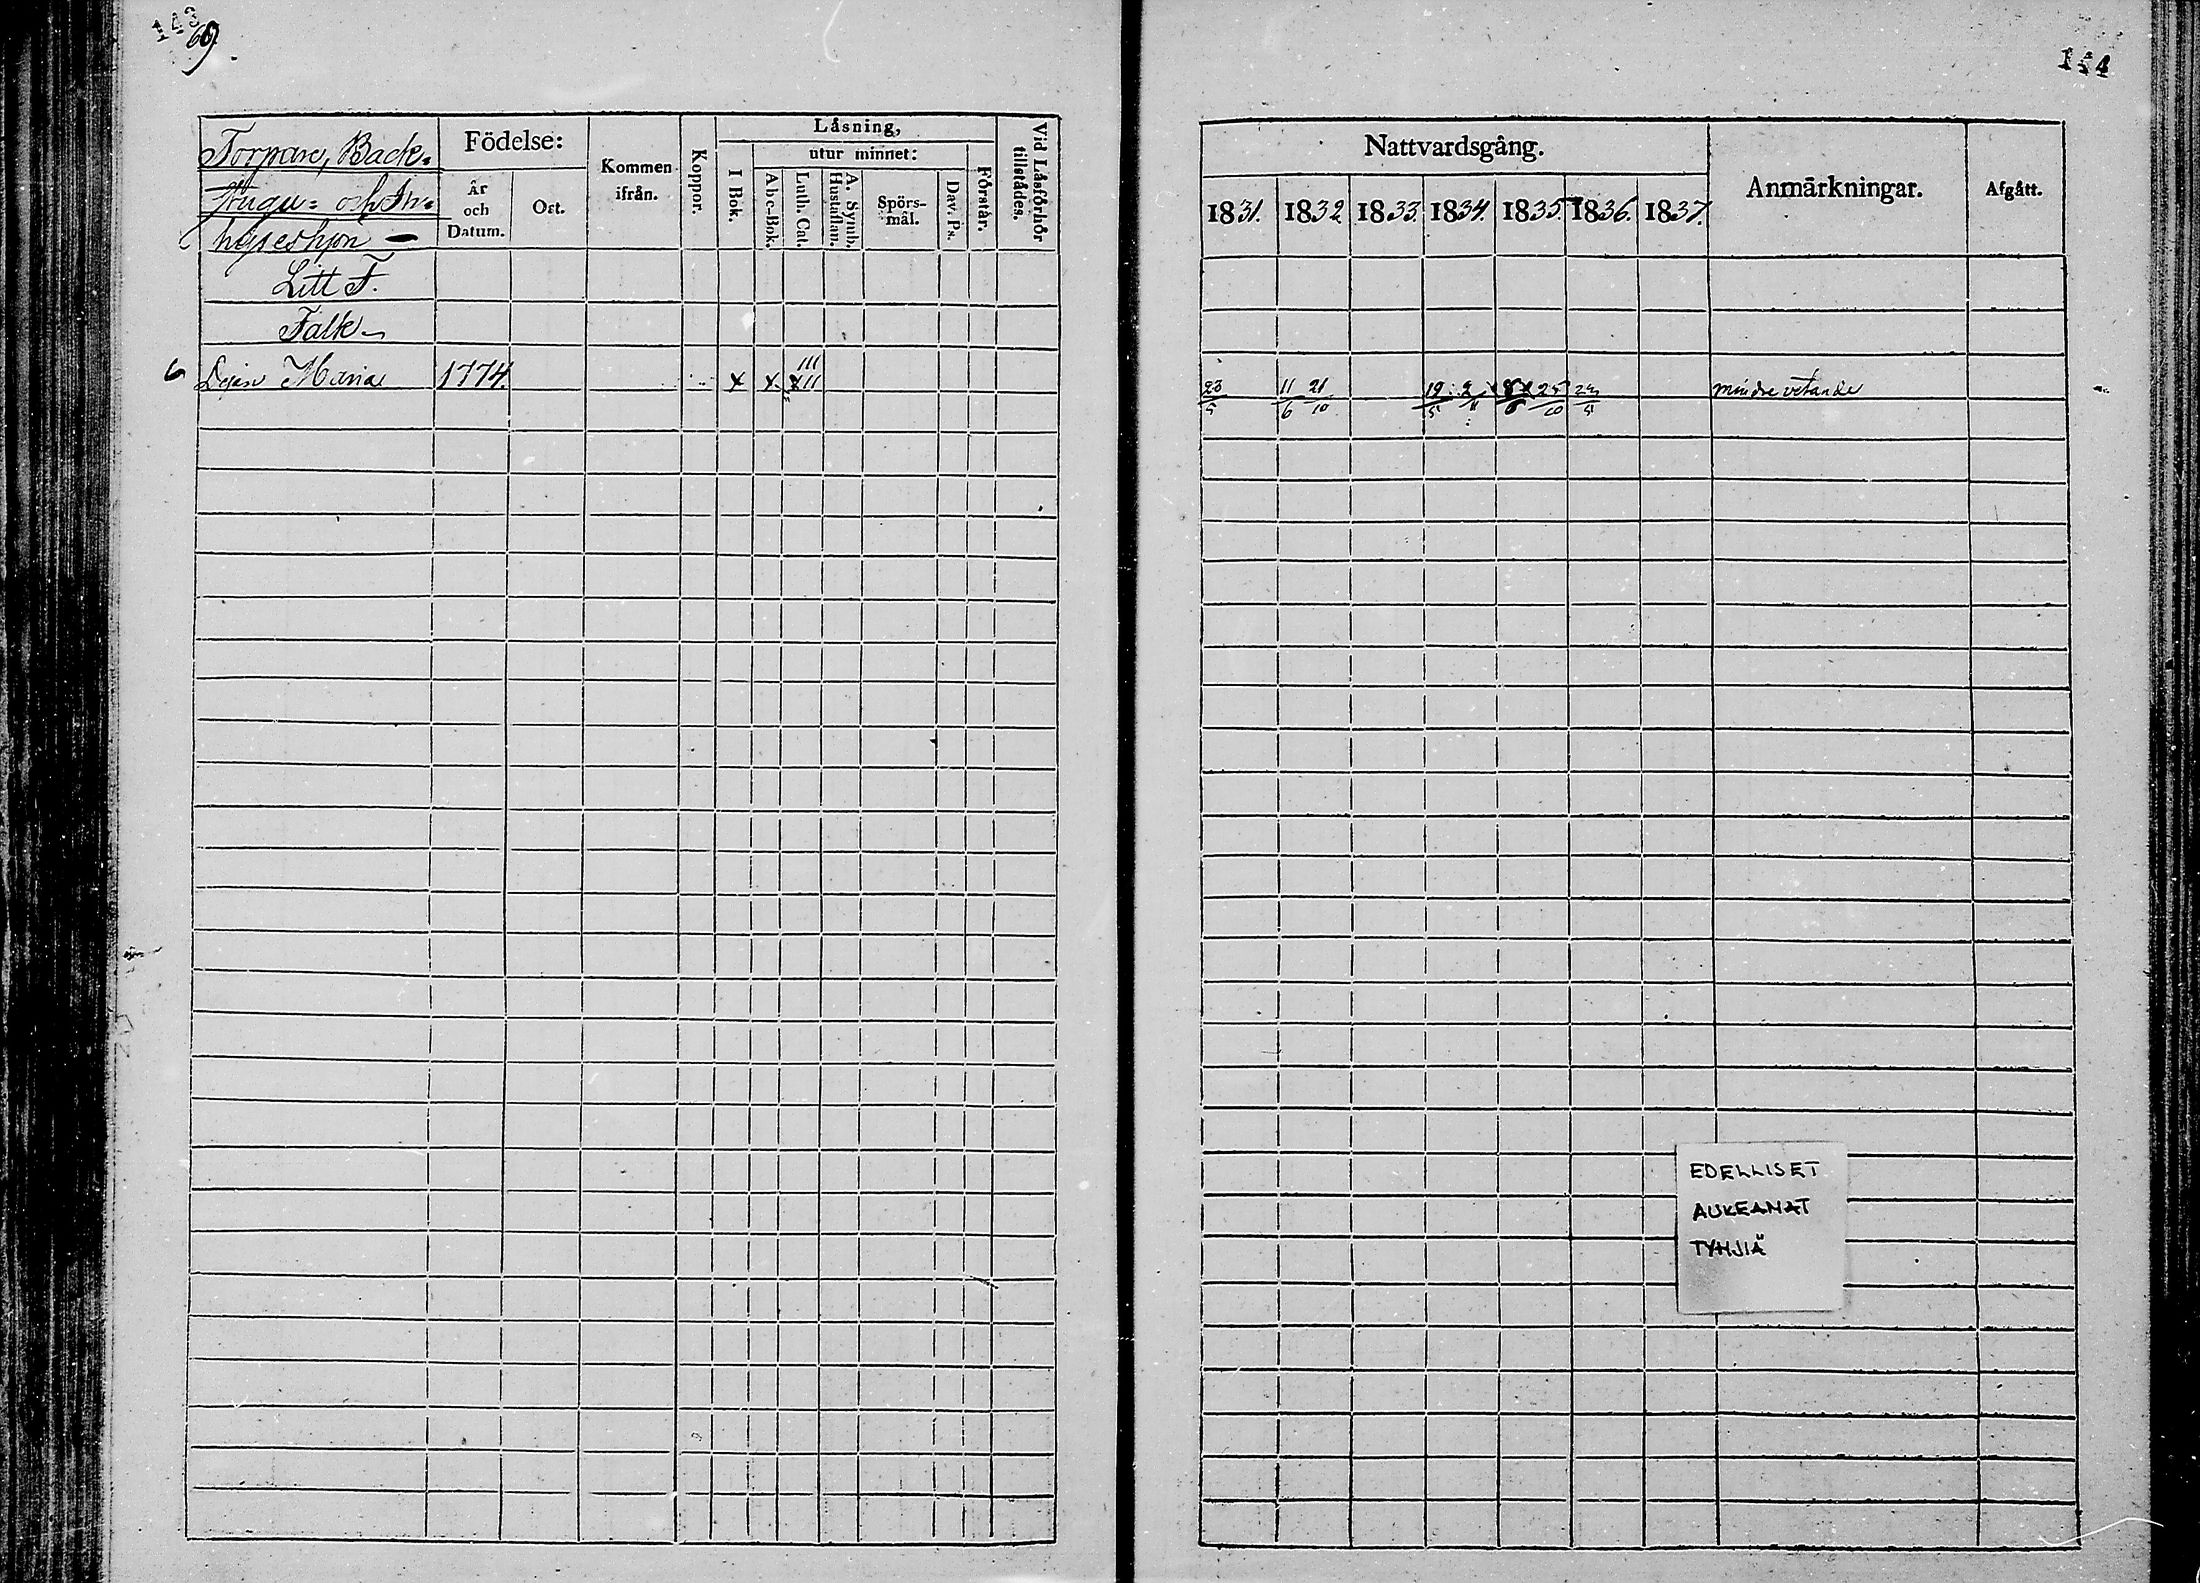 143
69.
Torpare, Back-
stugu- och In-
hyseshjon
Litt F.
Falk
Födelse:
År
och
Datum.
Ort.
Kommen
ifrån.
Koppor.
Låsning,
I Bok.
utur minnet:
Abc-Bok.
Luth. Cat.
A. Symb.
Hustaflan.
Spörs-
mål.
Dav. Ps.
Förstår.
Vid Låsförhör
tillstådes.
Maria 1774. x x
144
Nattvardsgång.
1831. 1832 1833. 1834. 1835. 1836. 1837.
Anmärkningar.
Afgått.
23/5 11/6 21/10 19/5 25/10
mindre vetande
EDELLISET
AUKEAMAT
TYHJIÄ